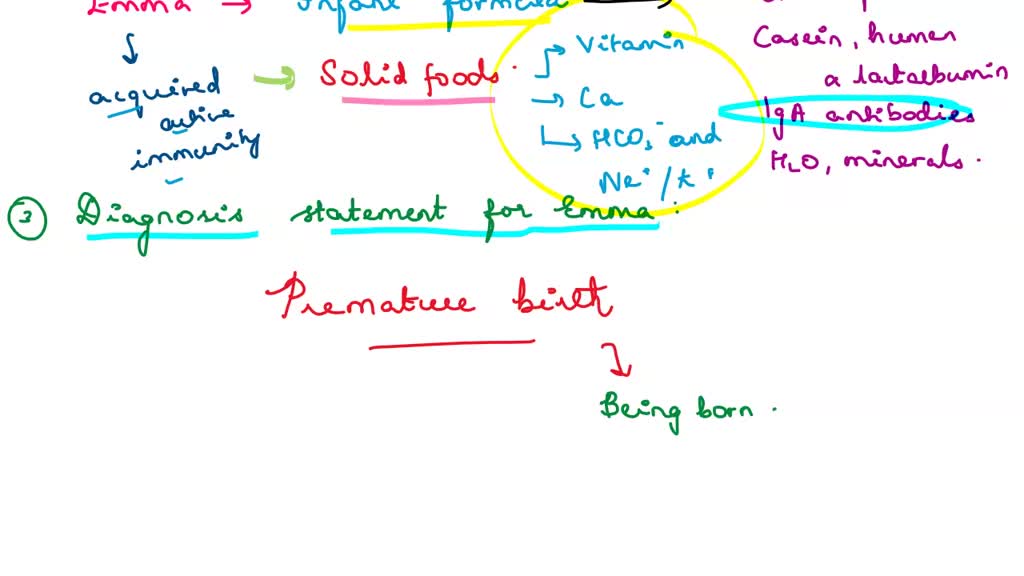 Emma → Infant formula
Casein, human
α lactalbumin
IgA antibodies
H2O, minerals.
acquired
active
immunity
→ Solid foods.
→ Vitamin
→ Ca
→ HCO3⁻ and
Na⁺/K⁺
③ Diagnosis statement for Emma:
Premature birth
Being born